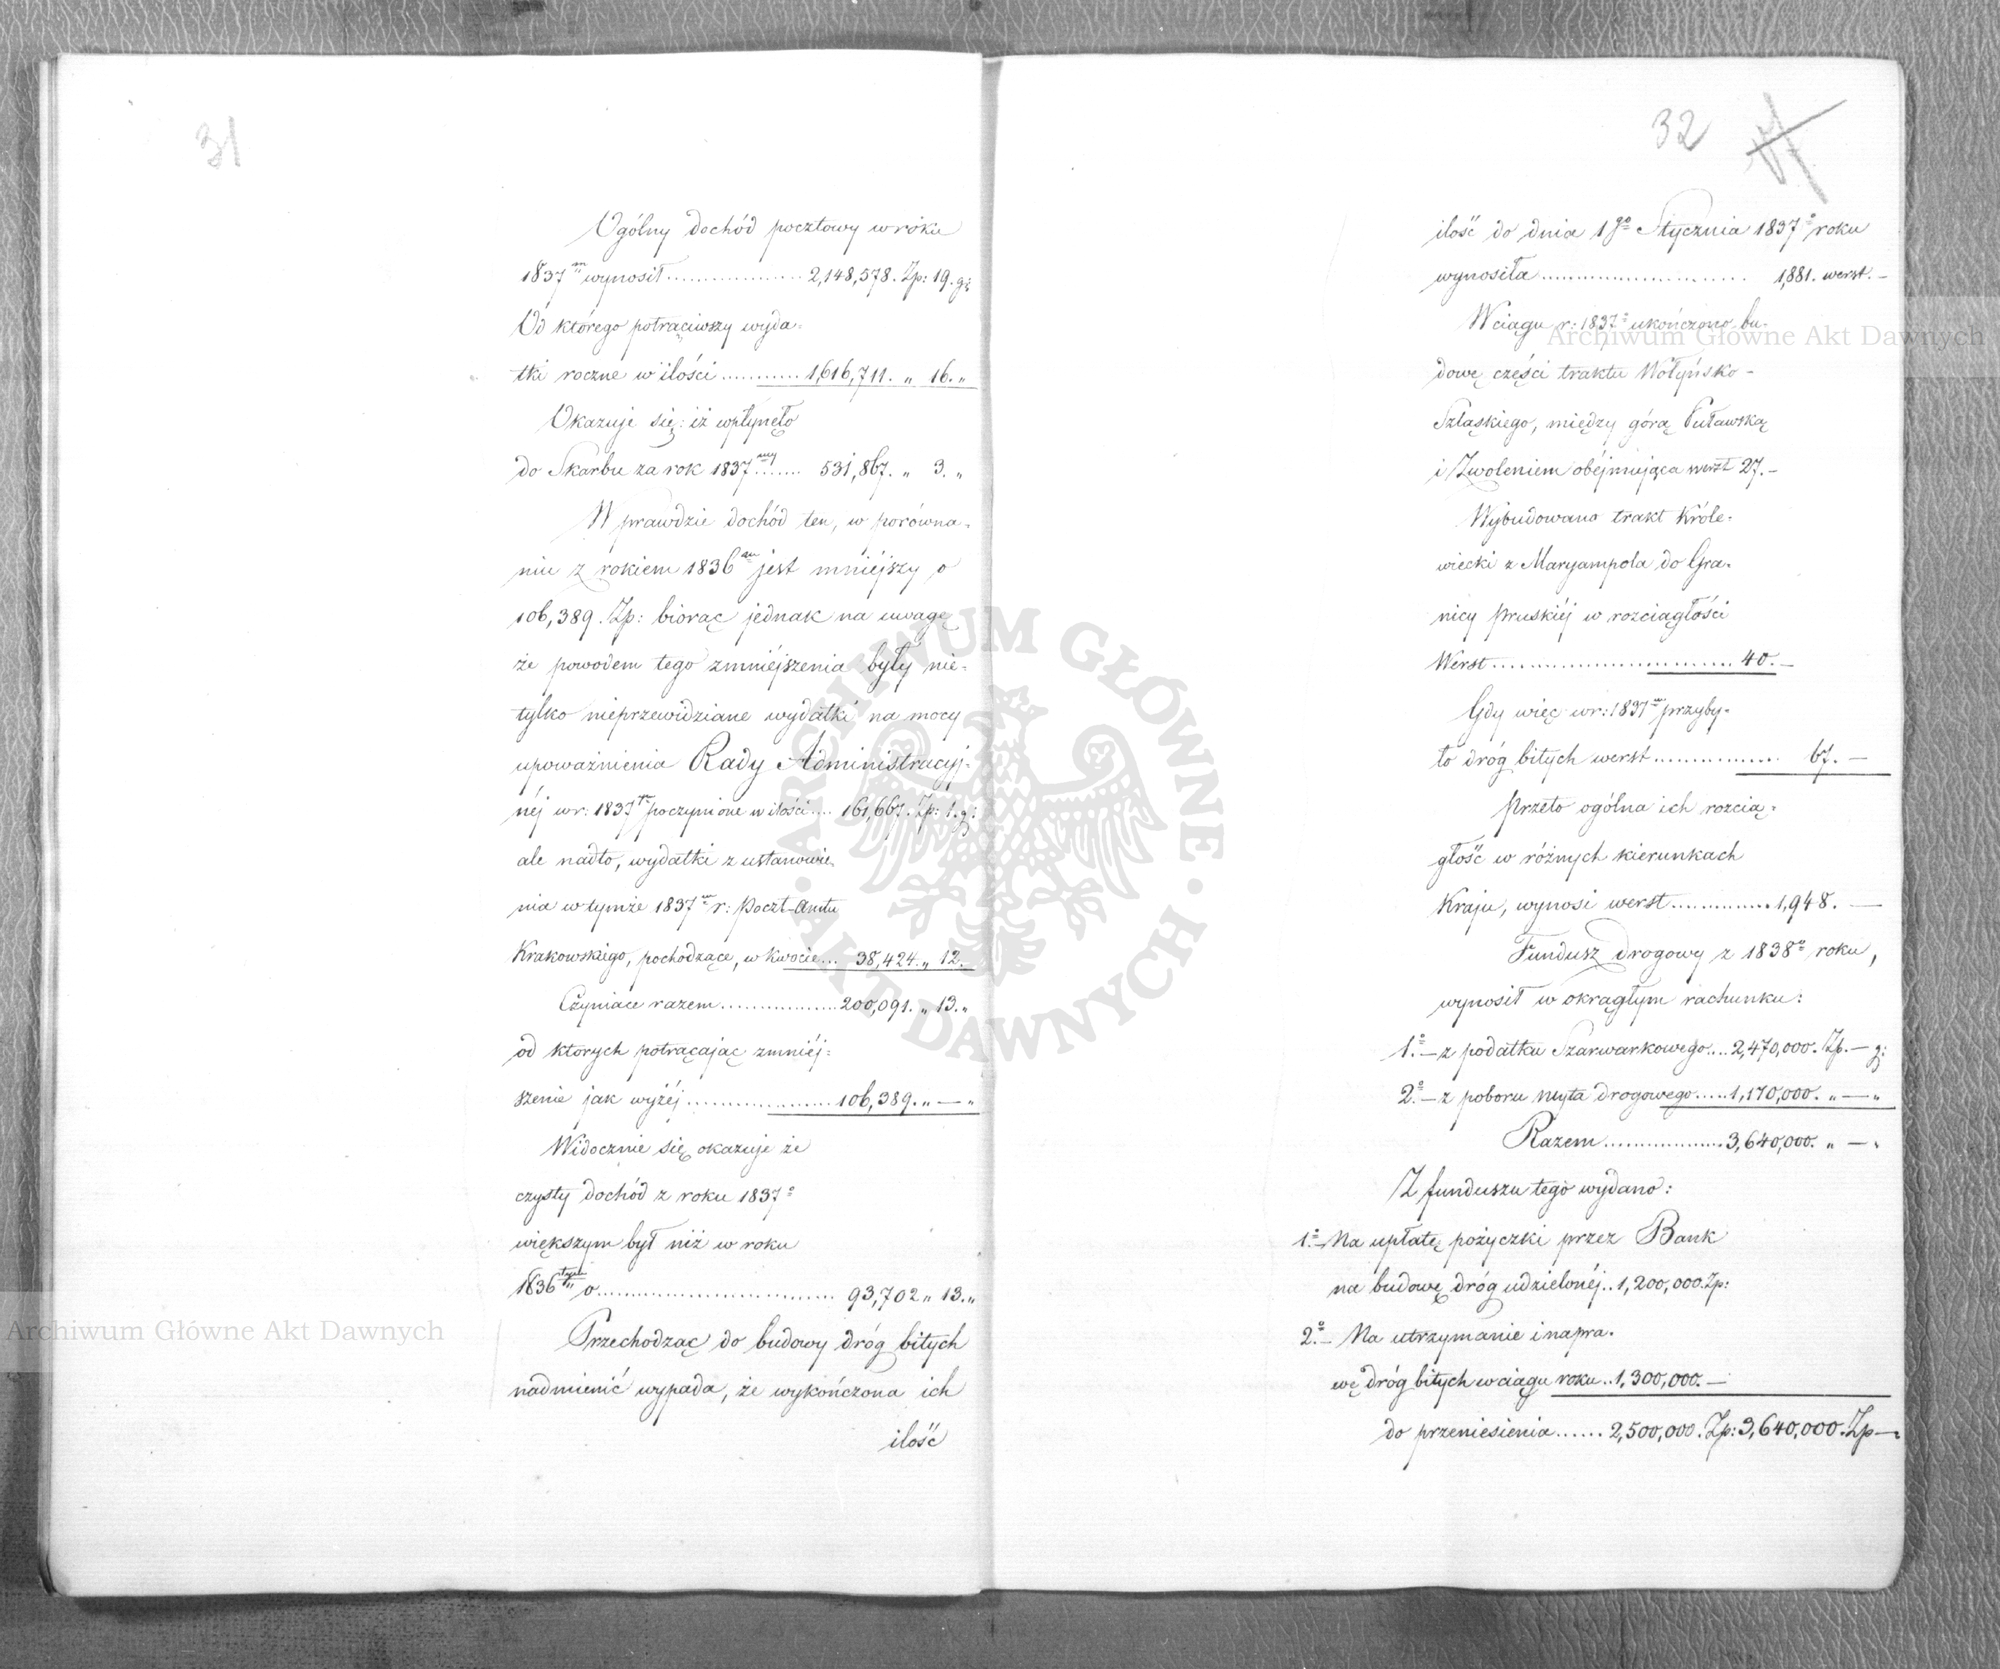 31
Ogólny dochód pocztowy w roku
1837m wynosił .................. 2,148,578. Zp: 19. g:
Od którego potrąciwszy wyda=
tki roczne w ilości ............ 1,616,711. „ 16. „
Okazuje się: iż wpłynęło
do Skarbu za rok 1837my ....... 531,867. „ 3. „
W prawdzie dochód ten, w porówna=
niu z rokiem 1836m jest mniéjszy o
106,389. Zp: biorąc jednak na uwagę
że powodem tego zmniéjszenia były nie=
tylko nieprzewidziane wydatki na mocy
upoważnienia Rady Administracyj=
néj w r: 1837m poczynione w ilości .... 161,667. Zp: 1. g:
ale nadto, wydatki z ustanowie
nia w tymże 1837m r: Poczt-Amtu
Krakowskiego, pochodzące, w kwocie ... 38,424. „ 12. –
Czyniące razem ................ 200,091. „ 13. „
od których potrącając zmniéj=
szenie jak wyżéj .................... 106,389. „ — „
Widocznie się okazuje że
czysty dochód z roku 1837o
większym był niż w roku
1836tym o .............................. 93,702 „ 13. „
Przechodząc do budowy dróg bitych
nadmienić wypada, że wykończona ich
ilość
32
ilość do dnia 1go Stycznia 1837o roku
wynosiła .......................... 1,881. werst. –
W ciągu r: 1837o ukończono bu=
dowę części traktu Wołyńsko –
Szląskiego, między górą Puławską
i Zwoleniem obéjmująca werst 27. –
Wybudowano trakt Króle=
wiecki z Maryampola do Gra=
nicy Pruskiéj w rozciągłości
Werst ............................ 40. –
Gdy więc w r: 1837m przyby=
ło dróg bitych werst ............... 67. —
Przeto ogólna ich rozcią=
głość w różnych kierunkach
Kraju, wynosi werst ............. 1,948. —
Fundusz drogowy z 1838o roku,
wynosił w okrągłym rachunku:
1.o – z podatku Szarwarkowego .... 2,470,000. Zp. – g:
2.o – z poboru myta drogowego ..... 1,170,000. „ — „
Razem ................. 3,640,000. „ — „
Z funduszu tego wydano:
1.o – Na upłatę pożyczki przez Bank
na budowę dróg udzielonéj .. 1,200,000. Zp:
2.o – Na utrzymanie i napra=
wę dróg bitych w ciągu roku .. 1,300,000. —
do przeniesienia ...... 2,500,000. Zp: 3,640,000. Zp —
ARCHIWUM GŁÓWNE · AKT DAWNYCH ·
Archiwum Główne Akt Dawnych
Archiwum Główne Akt Dawnych